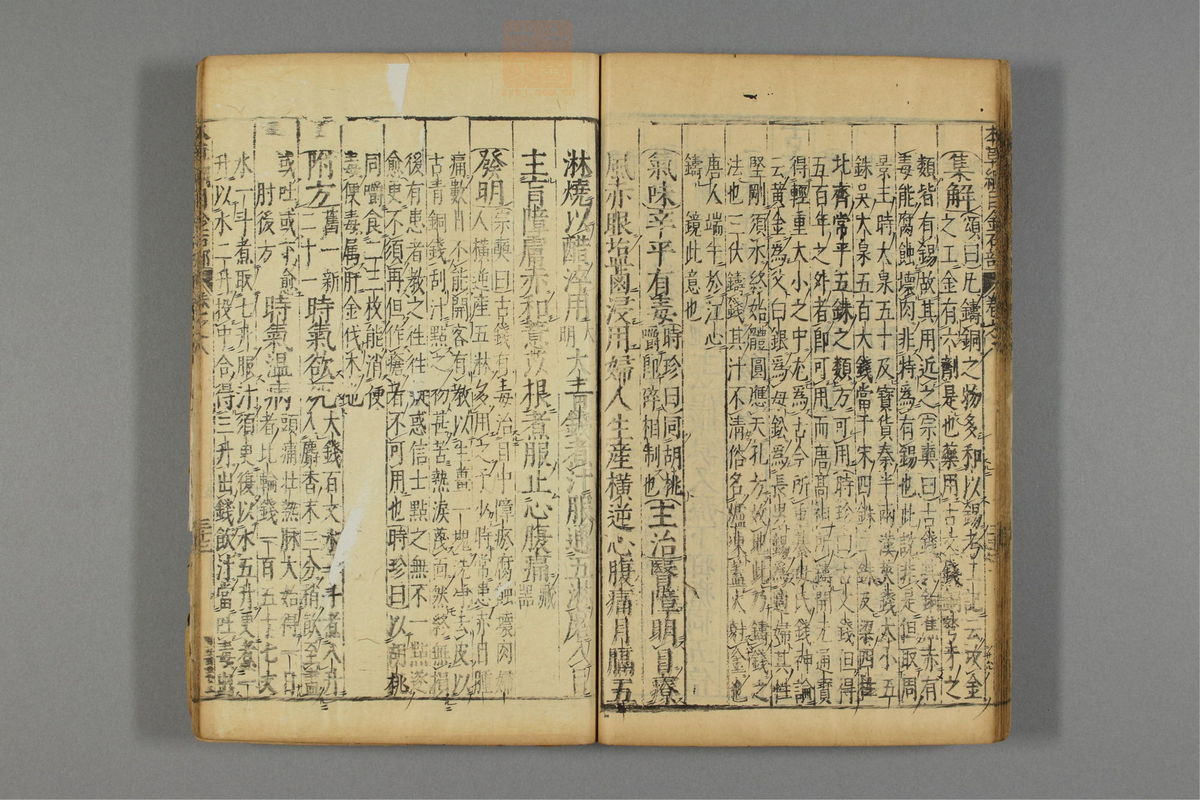 集解頌曰凡鑄銅之物多和以錫考工記云攻金
之工金有六劑是也藥用古文錢
類皆有錫故其用近之宗奭曰古錢其銅焦赤有
毒能腐蝕壞肉非特爲有錫也此說非是但取周
景王時大泉五十及寶貨秦半兩漢莢錢大小五
銖吳大泉五百大錢當千宋四銖二銖及梁四柱
北齊常平五銖之類方可用時珍曰古文錢但得
五百年之外者即可用而唐高祖所鑄開元通寶
得輕重大小之中尤爲古今所重綦毋氏錢神論
云黃金爲父白銀爲母鉛爲長男錫爲適婦其性
堅剛須水終始體圓應天孔方效地此乃鑄錢之
法也三伏鑄錢其汁不清俗名爐凍蓋火尅金也
唐人端午於江心
鑄鏡此意也
氣味辛平有毒時珍曰同胡桃嚼即碎相制也主治瞖障明目療
風赤眼塩鹵浸用婦人生産橫逆心腹痛月膈五
淋燒以醋淬用大明大青錢煮汁服通五淋磨入目
主盲障膚赤和薏苡根煮服止心腹痛藏器
發明宗奭曰古錢有毒治目中障瘀腐蝕壞肉婦
人橫逆産五淋多用之予少時常患赤目腫
痛數日不能開客有教以生薑一塊洗淨去皮以
古青銅錢刮汁點之初甚苦熱淚蔑面然終無損
後有患者教之往往疑惑信士點之無不一點遂
愈更不須再但作瘡者不可用也時珍曰以胡桃
同嚼食二三枚能消便
毒便毒屬肝金伐木也
附方舊一新二十一時氣欲死大錢百文水一斗煮八升
入麝香末三分稍飲至盡
或吐或下愈
肘後方時氣溫病頭痛壯熱脉大始得一日
者比輪錢一百五十七文
水一斗煮取七升服汁須臾復以水五升更煮一
升以水二升投中合得三升出錢飲汁當吐毒出